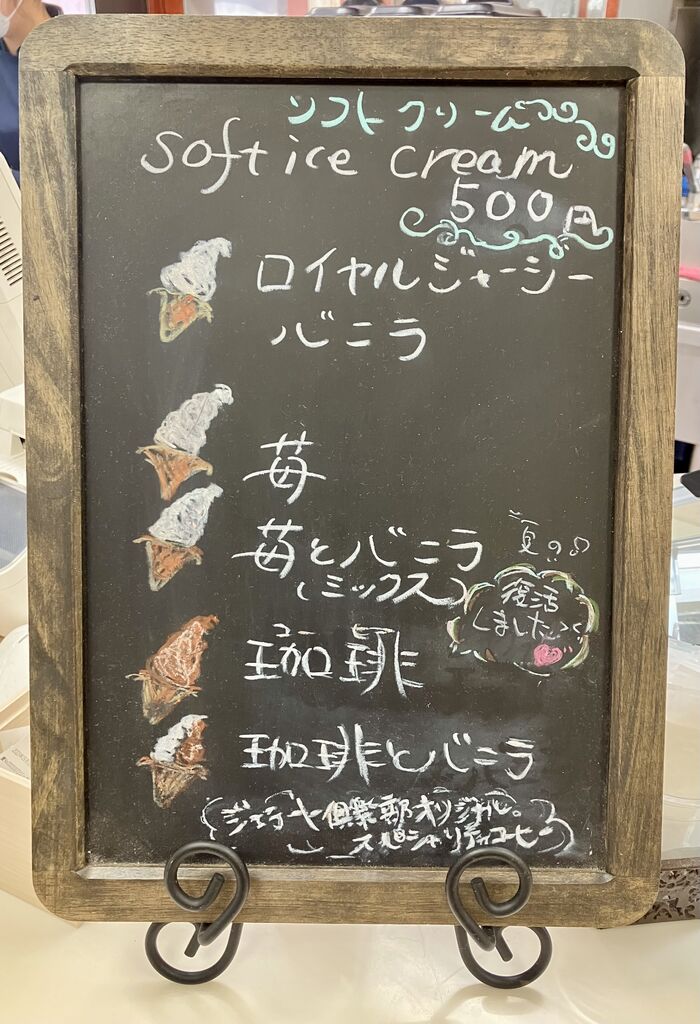 ソフトクリーム
soft ice cream
500円
ロイヤルジャージー
バニラ
苺
苺とバニラ
(ミックス)
夏の♪
復活
しました
珈琲
珈琲とバニラ
倶楽部オリジナル。
スペシャリティコーヒー